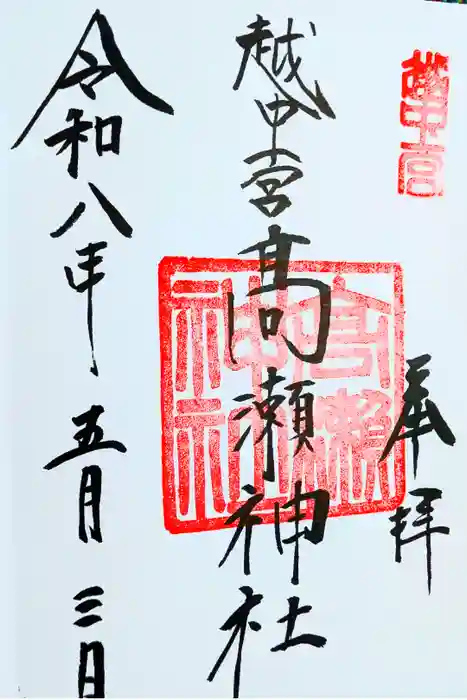 越中宮
奉拝
越中宮高瀬神社
高瀬神社
令和八年五月三日